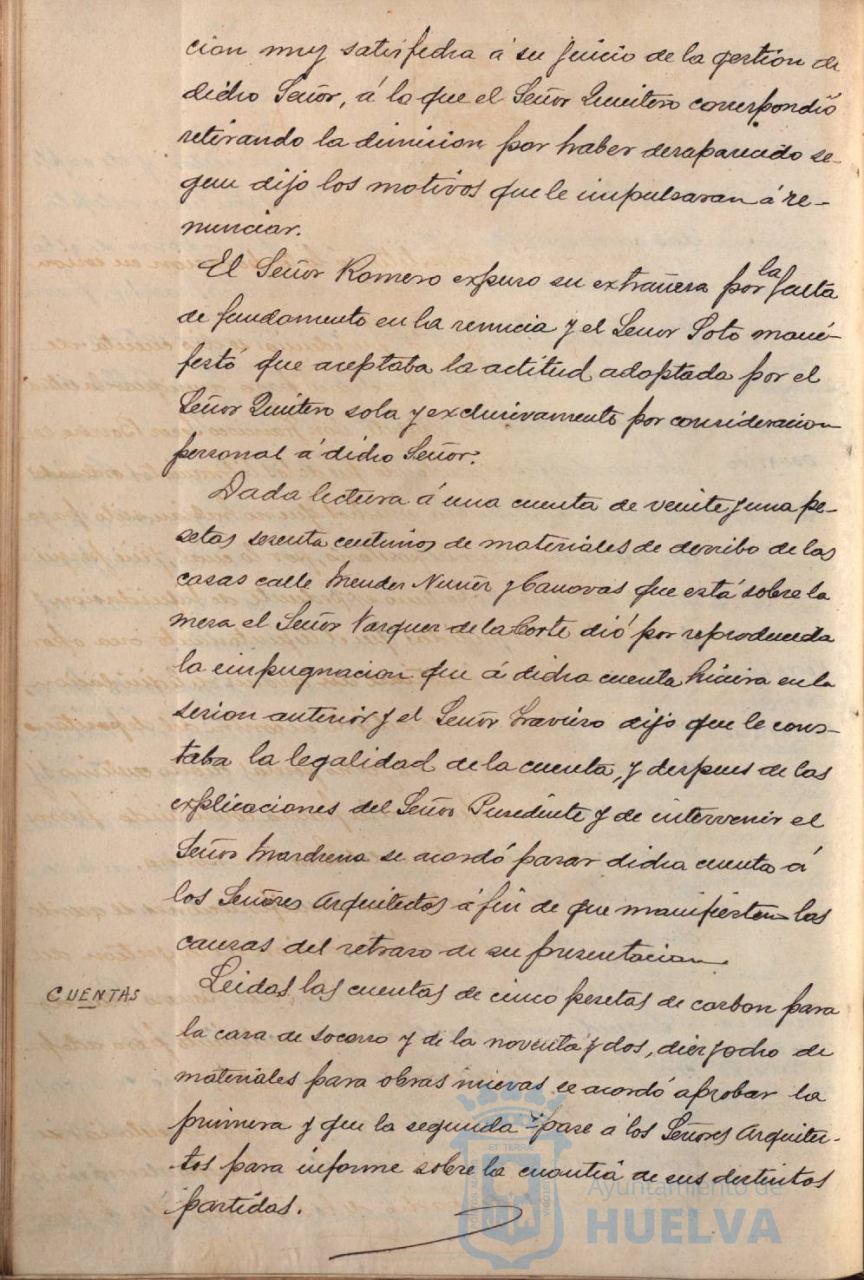 cion muy satisfecha á su juicio de la gestión de
dicho Señor, á la que el Señor Quintero correspondió
retirando la dimision por haber desaparecido se-
gun dijo los motivos que le impulsaran á re-
nunciar.
El Señor Romero expuso su extrañeza por la falta
de fundamento en la renuncia y el Señor Soto mani-
festó que aceptaba la actitud adoptada por el
Señor Quintero sola y exclusivamente por consideracion
personal á dicho Señor.
Dada lectura á una cuenta de veinte y una pe-
setas sesenta centimos de materiales de derribo de las
casas calle Mendez Nuñez y Canovas que está sobre la
mesa el Señor Vazquez de la Corte dió por reproducida
la impugnacion que á dicha cuenta hiciera en la
sesion anterior y el Señor Travieso dijo que le cons-
taba la legalidad de la cuenta, y despues de las
explicaciones del Señor Presidente y de intervenir el
Señor Marchena se acordó pasar dicha cuenta á
los Señores Arquitectos á fin de que manifiesten las
causas del retraso de su presentacion.
CUENTAS
Leidas las cuentas de cinco pesetas de carbon para
la casa de socorro y de la noventa y dos, diez y ocho de
materiales para obras nuevas se acordó aprobar la
primera y que la segunda pase á los Señores Arquitec-
tos para informe sobre la cuantiá de sus distintas
partidas.
Ayuntamiento de
HUELVA